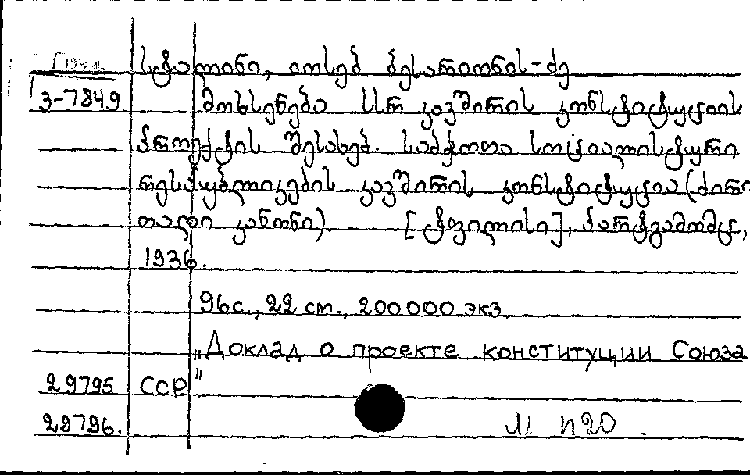 სტალინი, იოსებ ბესარიონის-ძე
3-7849 მოხსენება სსრ კავშირის კონსტიტუციის
პროექტის შესახებ. საბჭოთა სოციალისტური
რესპუბლიკების კავშირის კონსტიტუცია (ძირი-
თადი კანონი) [ტფილისი], პარტგამომც.,
1936.
96с., 22 см., 200000 экз.
„Доклад о проекте конституции Союза
29795 ССР"
29796. П20